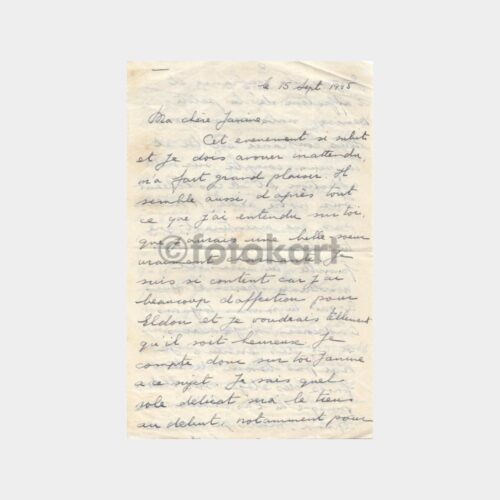 le 15 Sept 1945
Ma chère Janine,
Cet evenement si subit
et je dois avouer inattendu,
m'a fait grand plaisir. Il
semble aussi, d'après tout
ce que j'ai entendu sur toi,
que j'aurais une belle sœur
©fotokart
Je
suis si content car j'ai
beaucoup d'affection pour
Eldon et je voudrais tellement
qu'il soit heureux. Je
compte donc sur toi Janine
a ce sujet. Je sais quel
role délicat sera le tiens
au debut, notamment pour